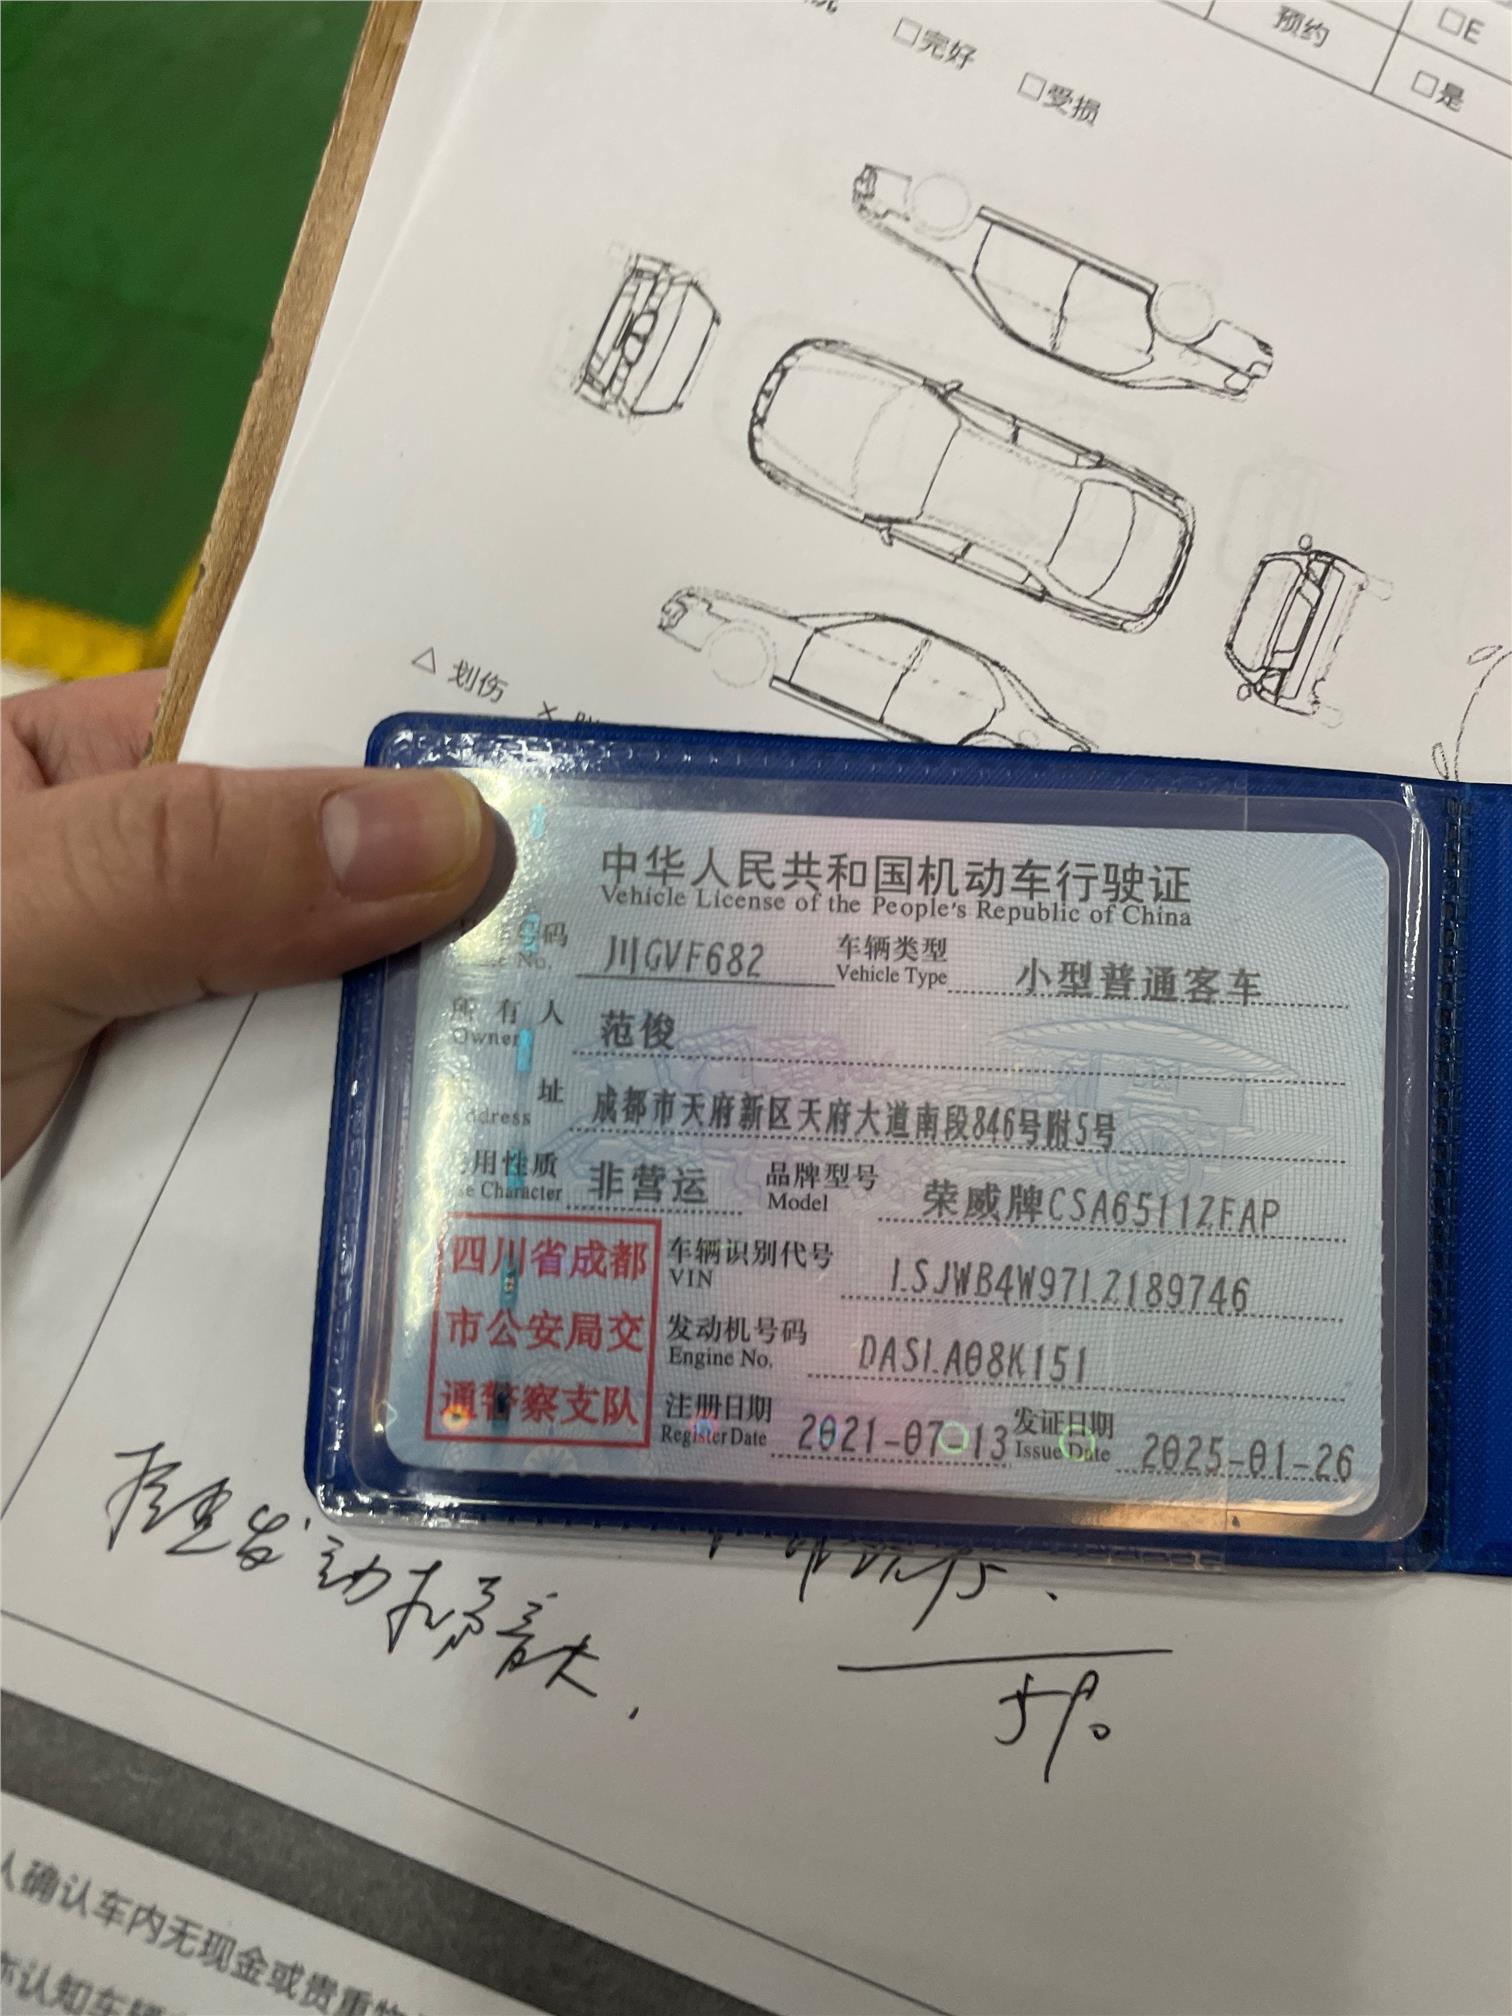 预约
□E
□完好
□受损
□是
△ 划伤
中华人民共和国机动车行驶证
Vehicle License of the People's Republic of China
号码 川GVF682 车辆类型 小型普通客车
No. Vehicle Type
所有人 范俊
Owner
址 成都市天府新区天府大道南段846号附5号
ddress
用性质 非营运 品牌型号 荣威牌CSA6511ZFAP
Character Model
四川省成都
市公安局交
通警察支队
车辆识别代号 LSJWB4W97LZ189746
VIN
发动机号码 DASLA08K151
Engine No.
注册日期 2021-07-13 发证日期 2025-01-26
Register Date Issue Date
检查发动机异音大.
人确认车内无现金或贵重物
认知车辆